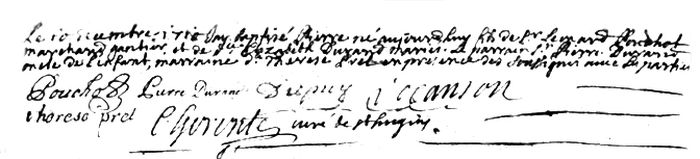 Le 10 decembre 1710 Jay baptisé Pierre né aujourdhuy fils de Sr Leonard Pouchot
marchand gantier, et de dlle Elizabeth Durand mariés. Le parrain Sr Pierre Durand
oncle de l'enfant, marraine dlle Therese Pret en presence des soussignes avec les parties
Pouchot Pierre Durand Dupuy
therese pret curé de st hugues.